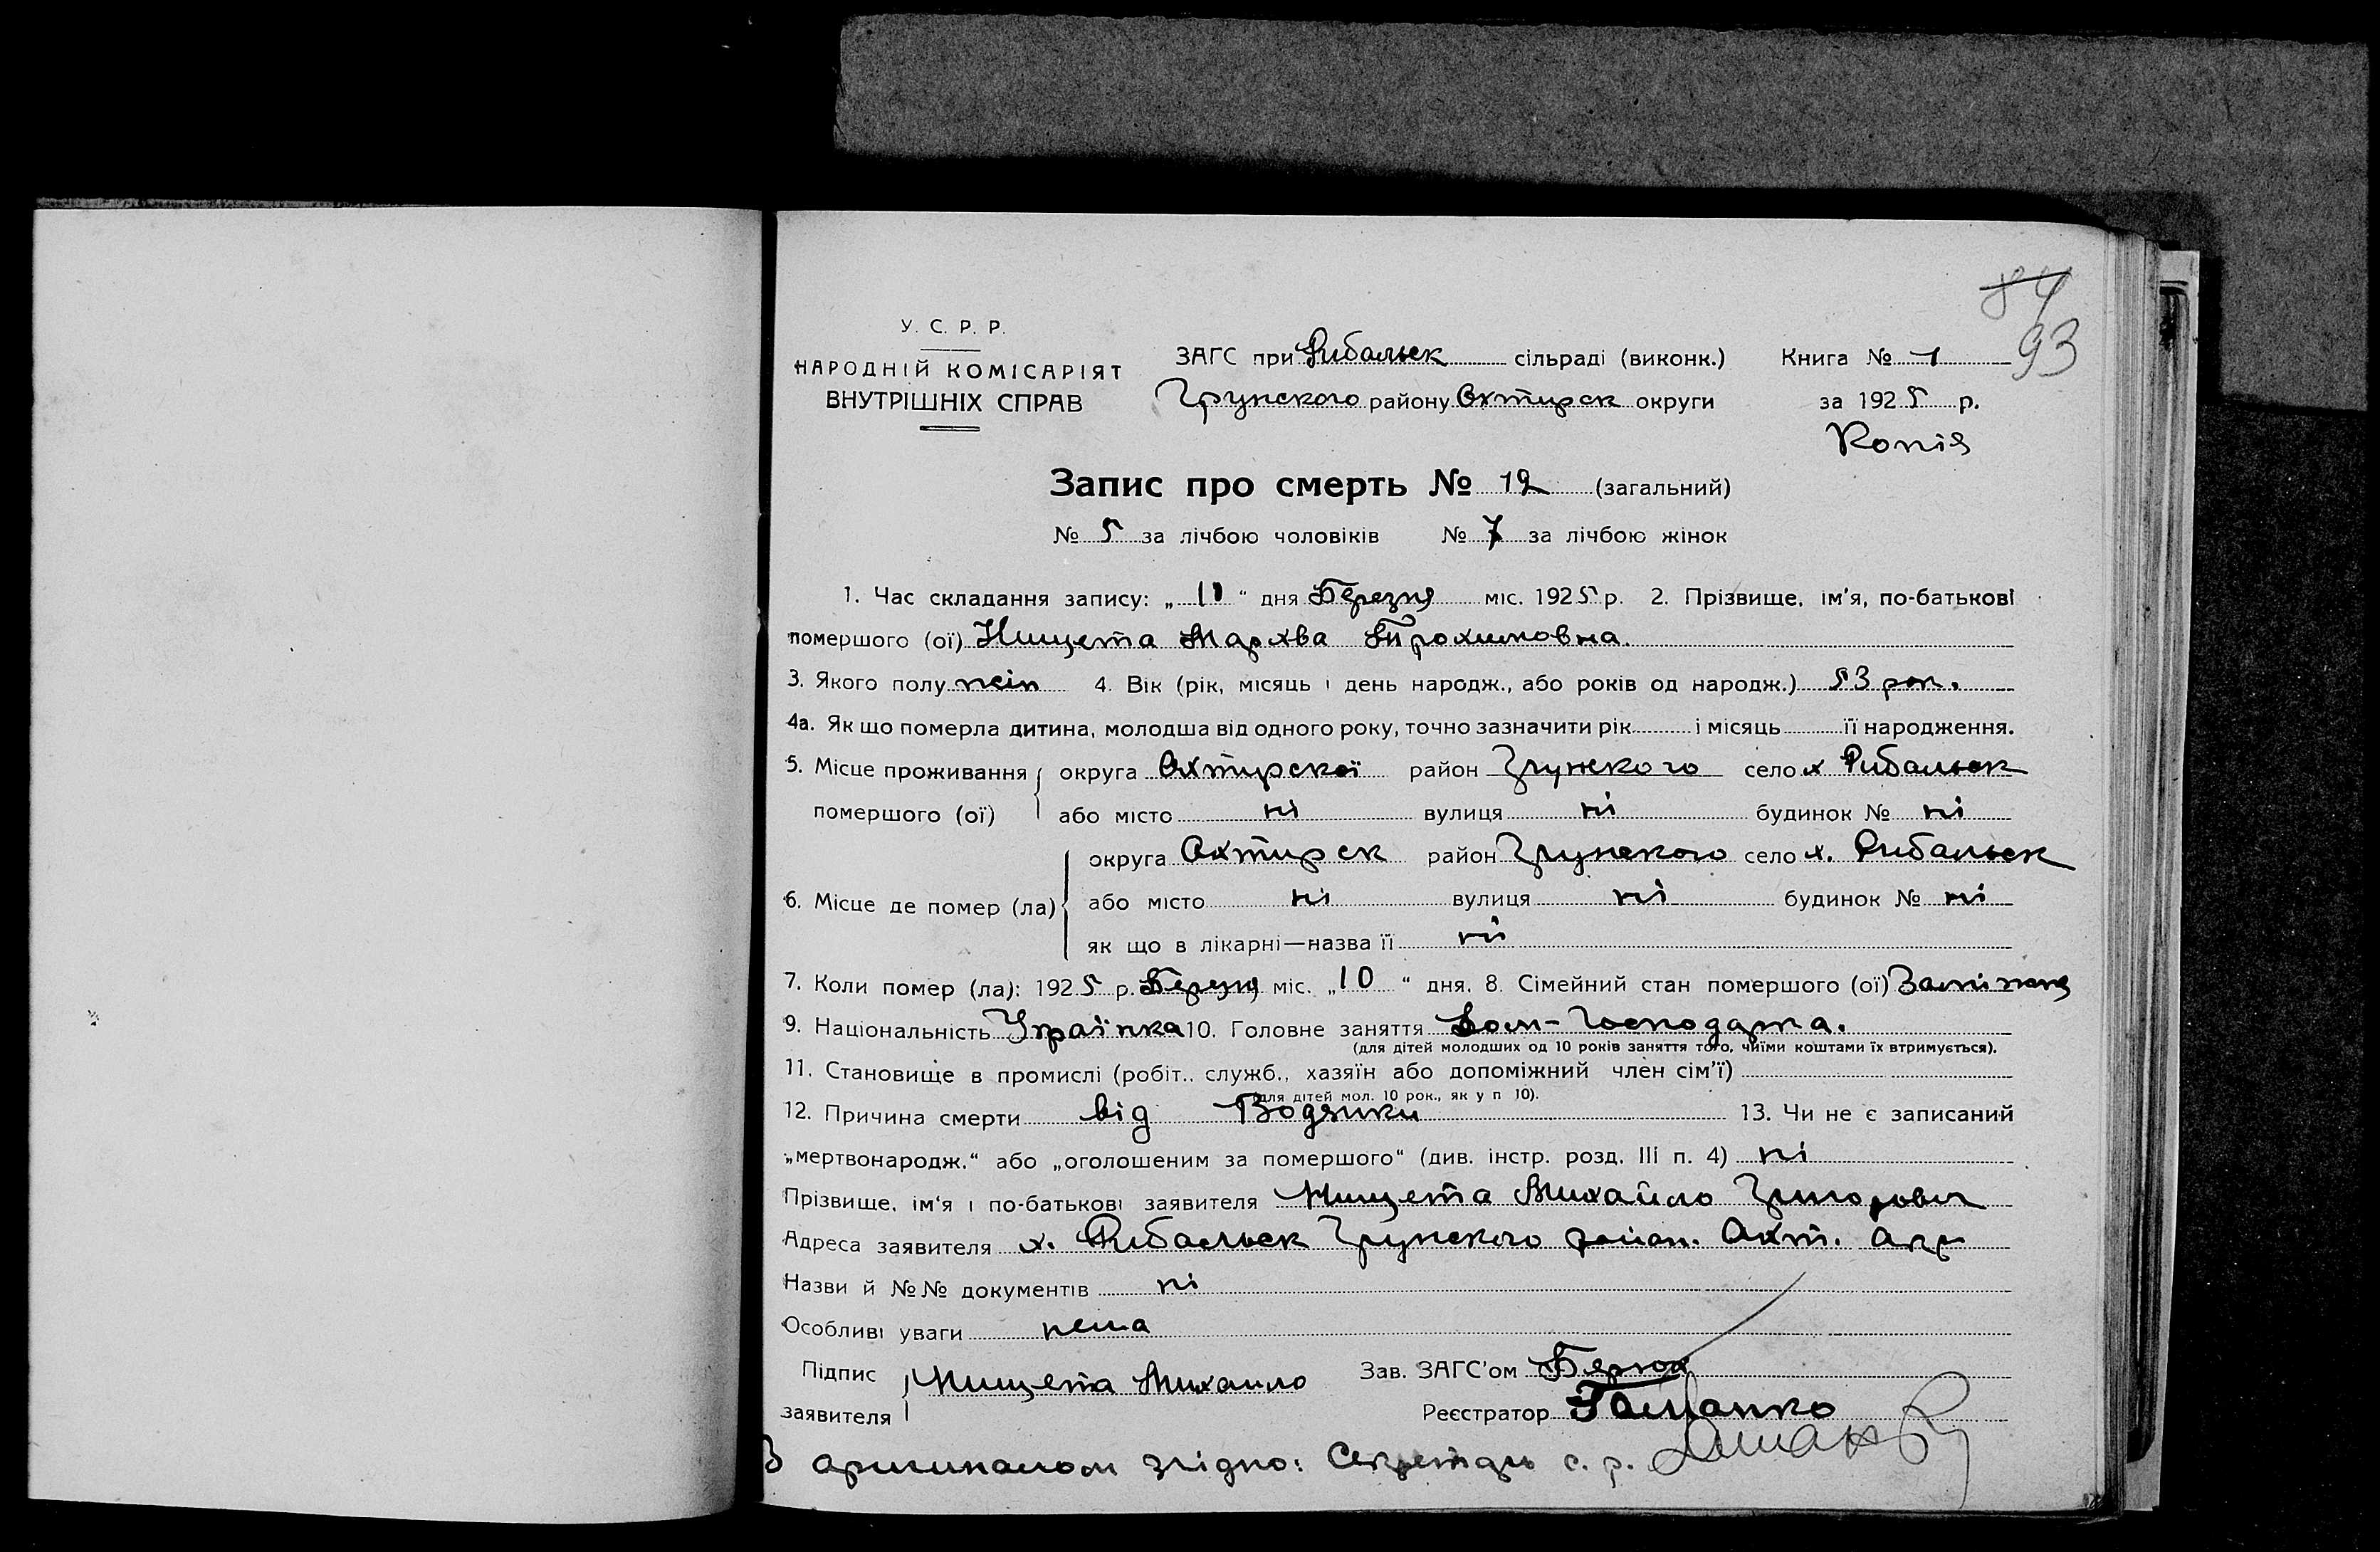 84
93
У. С. Р. Р.
НАРОДНІЙ КОМІСАРІЯТ
ВНУТРІШНІХ СПРАВ
ЗАГС при Рибальск сільраді (виконк.) Книга № 1
Грунского району Охтирск округи за 1925 р.
Копія
Запис про смерть № 12 (загальний)
№ 5 за лічбою чоловіків № 7 за лічбою жінок
1. Час складання запису: „ 11 “ дня Березня міс. 1925 р. 2. Прізвище, ім'я, по-батькові
помершого (ої) Нищета Мархва Трохимовна.
3. Якого полу жін 4. Вік (рік, місяць і день народж., або років од народж.) 53 рок.
4а. Як що померла дитина, молодша від одного року, точно зазначити рік і місяць її народження.
5. Місце проживання округа Охтирскої район Грунского село х Рибальск
помершого (ої) або місто ні вулиця ні будинок № ні
округа Охтирск район Грунского село х. Рибальск
6. Місце де помер (ла) або місто ні вулиця ні будинок № ні
як що в лікарні—назва її ні
7. Коли помер (ла): 1925 р. Березня міс. „10 “ дня. 8. Сімейний стан помершого (ої) Заміжня
9. Національність Українка 10. Головне заняття Дом-Господарка.
(для дітей молодших од 10 років заняття того, чиїми коштами їх втримується).
11. Становище в промислі (робіт., служб., хазяїн або допоміжний член сім'ї)
(для дітей мол. 10 рок., як у п 10).
12. Причина смерти від Водянки 13. Чи не є записаний
„мертвонародж.“ або „оголошеним за помершого“ (див. інстр. розд. III п. 4) ні
Прізвище, ім'я і по-батькові заявителя Нищета Михайло Григорович
Адреса заявителя х. Рибальск Грунского район. Охт. окр
Назви й №№ документів ні
Особливі уваги нема
Підпис заявителя Нищета Михаило Зав. ЗАГС'ом
Реєстратор
З оригиналом згідно: Секретарь с. р.